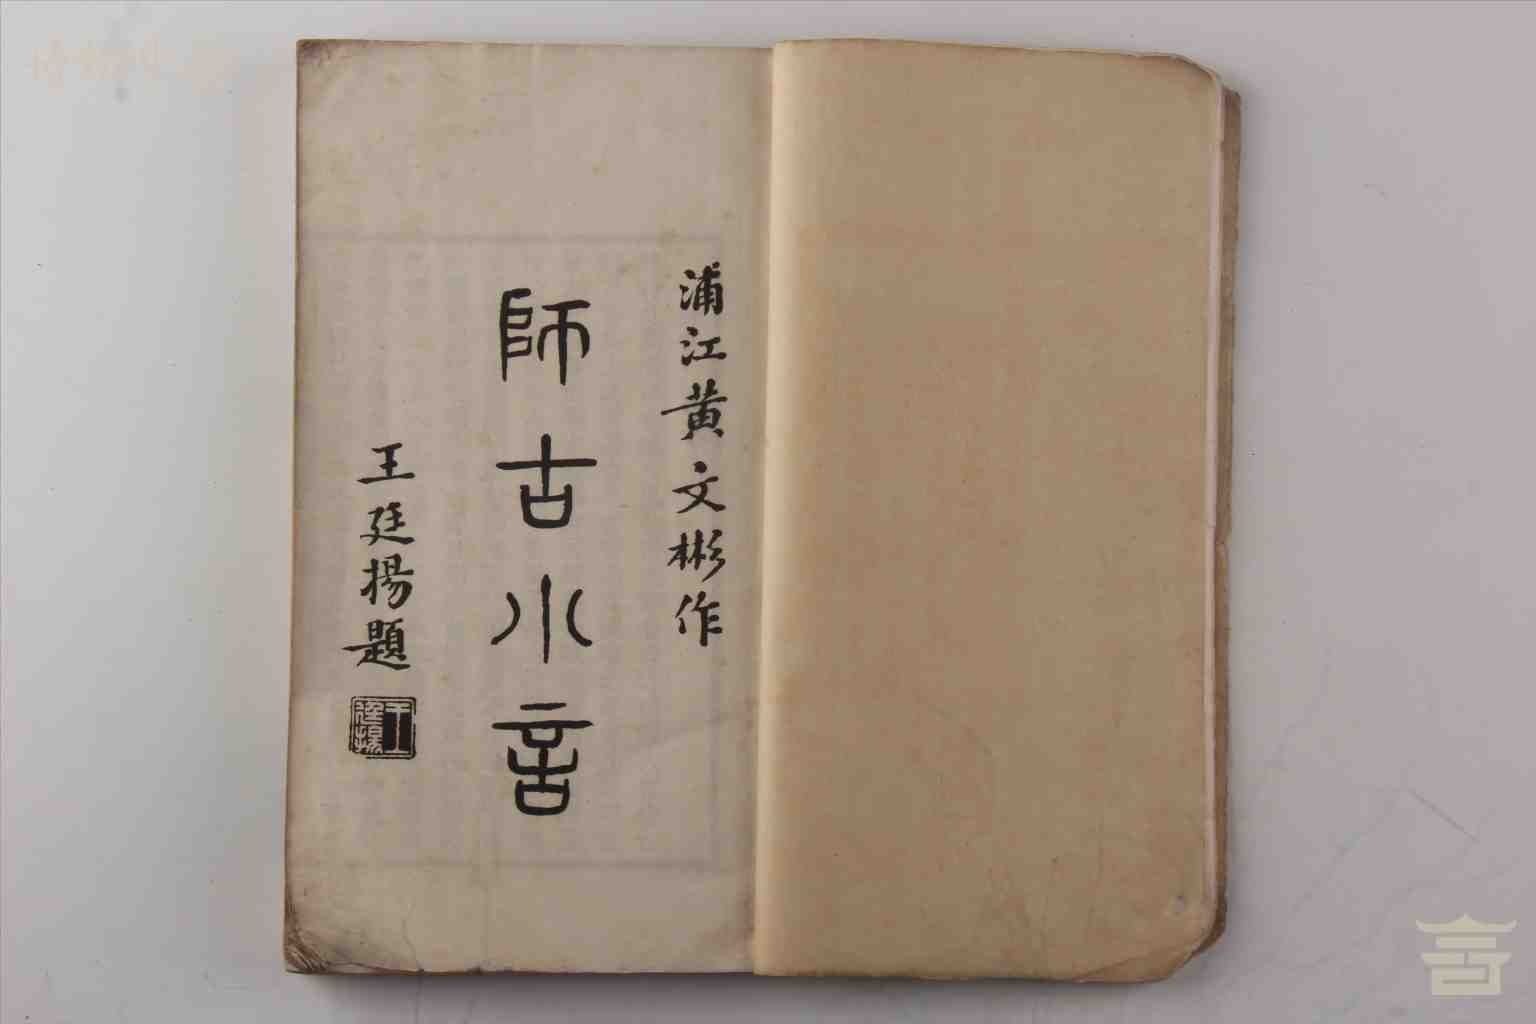 浦江黄文彬作
師古小言
王廷揚題
王廷揚